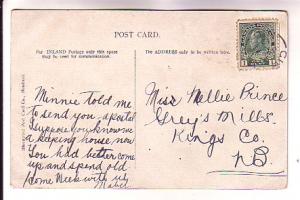 POST CARD.
For INLAND Postage only this space
may be used for communication.
The ADDRESS only to be written here.
Minnie told me
to send you, a postal
Suppose you know me
a keeping house now
You had better come
up and spend old
come Week with us
Mabel
Miss Nellie Prince
Grey's Mills,
Kings Co.
N.B.